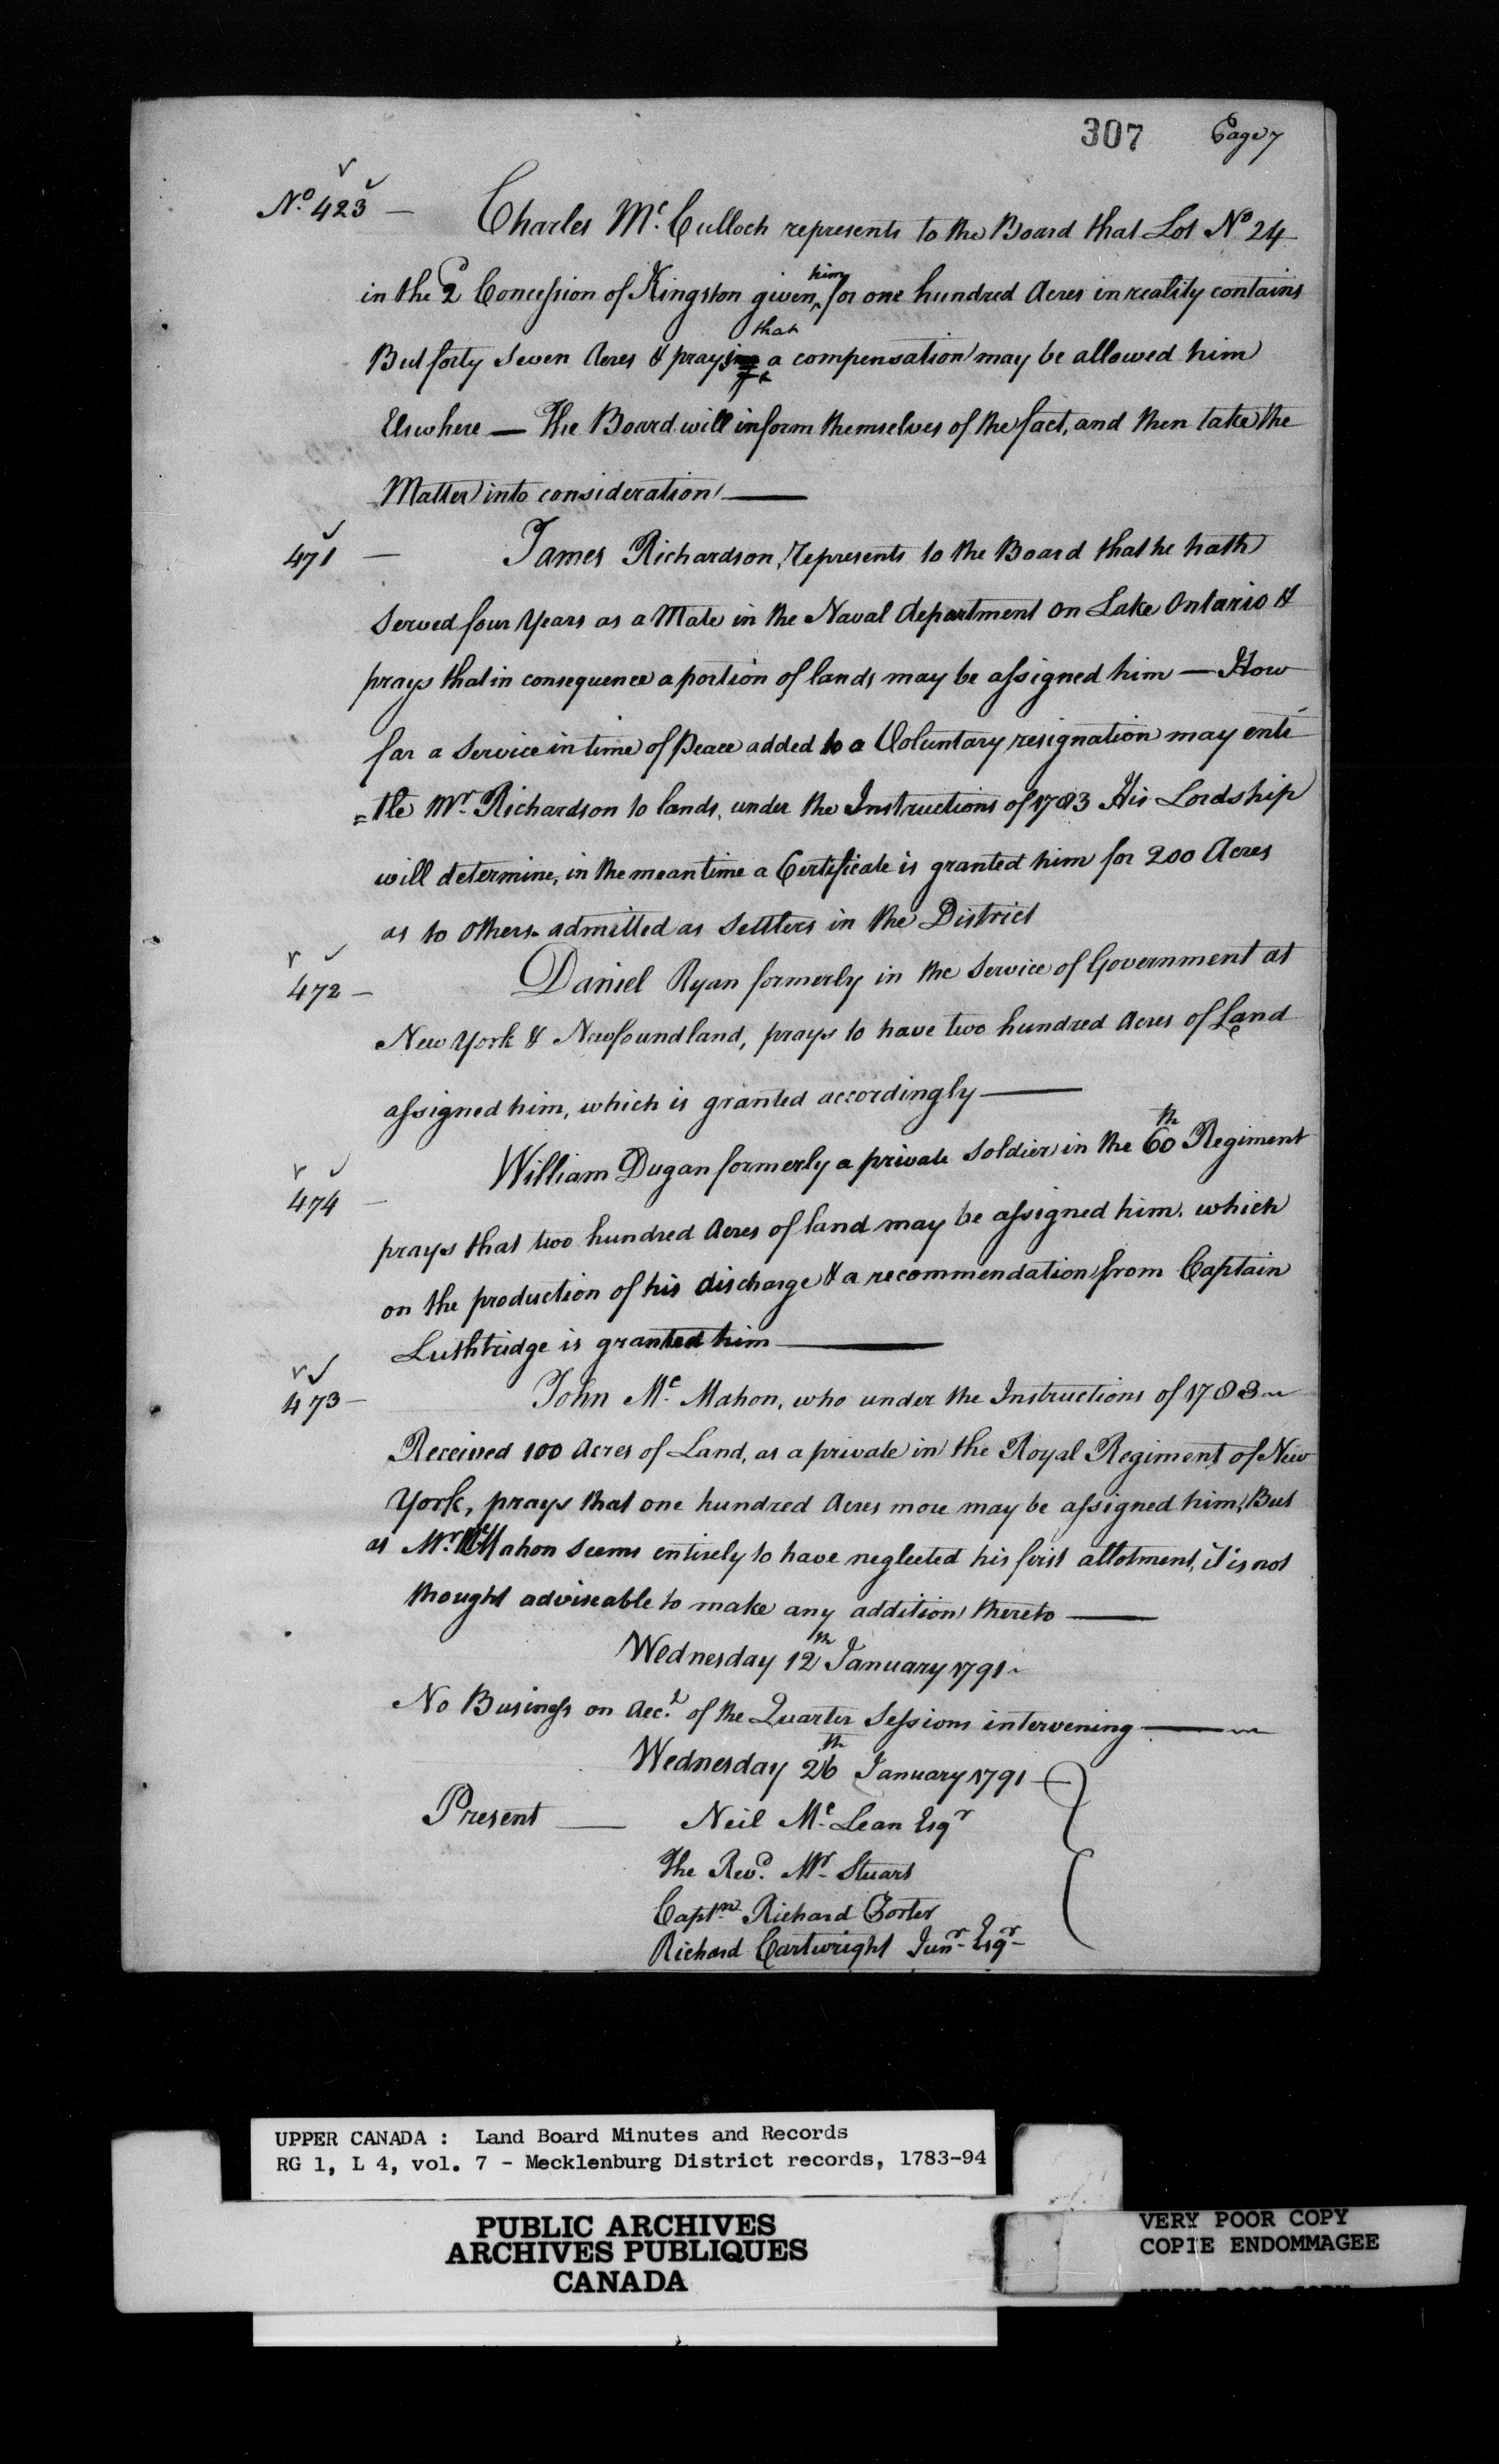 307 Page 7
No. 423 — Charles Mc. Culloch represents to the Board that Lot No 24
in the 2d Concession of Kingston given him for one hundred Acres in reality contains
But forty Seven Acres & prays that a compensation may be allowed him
Elsewhere — The Board will inform themselves of the fact, and then take the
Matter into consideration —
471 — James Richardson, represents to the Board that he hath
Served four Years as a Mate in the Naval department on Lake Ontario &
prays that in consequence a portion of lands may be assigned him — How
far a Service in time of peace added to a Voluntary resignation may enti
=tle Mr. Richardson to lands, under the Instructions of 1783 His Lordship
will determine, in the meantime a Certificate is granted him for 200 Acres
as to others admitted as Settlers in the District
472 — Daniel Ryan formerly in the Service of Government at
New York & Newfoundland, prays to have two hundred Acres of Land
assigned him, which is granted accordingly —
474 — William Dugan formerly a private Soldier in the 60th Regiment
prays that two hundred Acres of land may be assigned him. which
on the production of his discharge & a recommendation from Captain
Luthtridge is granted him —
473 — John Mc. Mahon, who under the Instructions of 1783
Received 100 Acres of Land, as a private in the Royal Regiment of New
York, prays that one hundred Acres more may be assigned him, But
as Mr. McMahon Seems entirely to have neglected his first allotment, it is not
thought adviseable to make any addition thereto —
Wednesday 12th January 1791
No Business on Acct. of the Quarter Sessions intervening —
Wednesday 26th January 1791 —
Present — Neil Mc. Lean Esqr
The Revd. Mr. Stuart
Captn. Richard Porter
Richard Cartwright Junr. Esqr.
UPPER CANADA : Land Board Minutes and Records
RG 1, L 4, vol. 7 - Mecklenburg District records, 1783-94
PUBLIC ARCHIVES
ARCHIVES PUBLIQUES
CANADA
VERY POOR COPY
COPIE ENDOMMAGEE
VERY POOR COPY